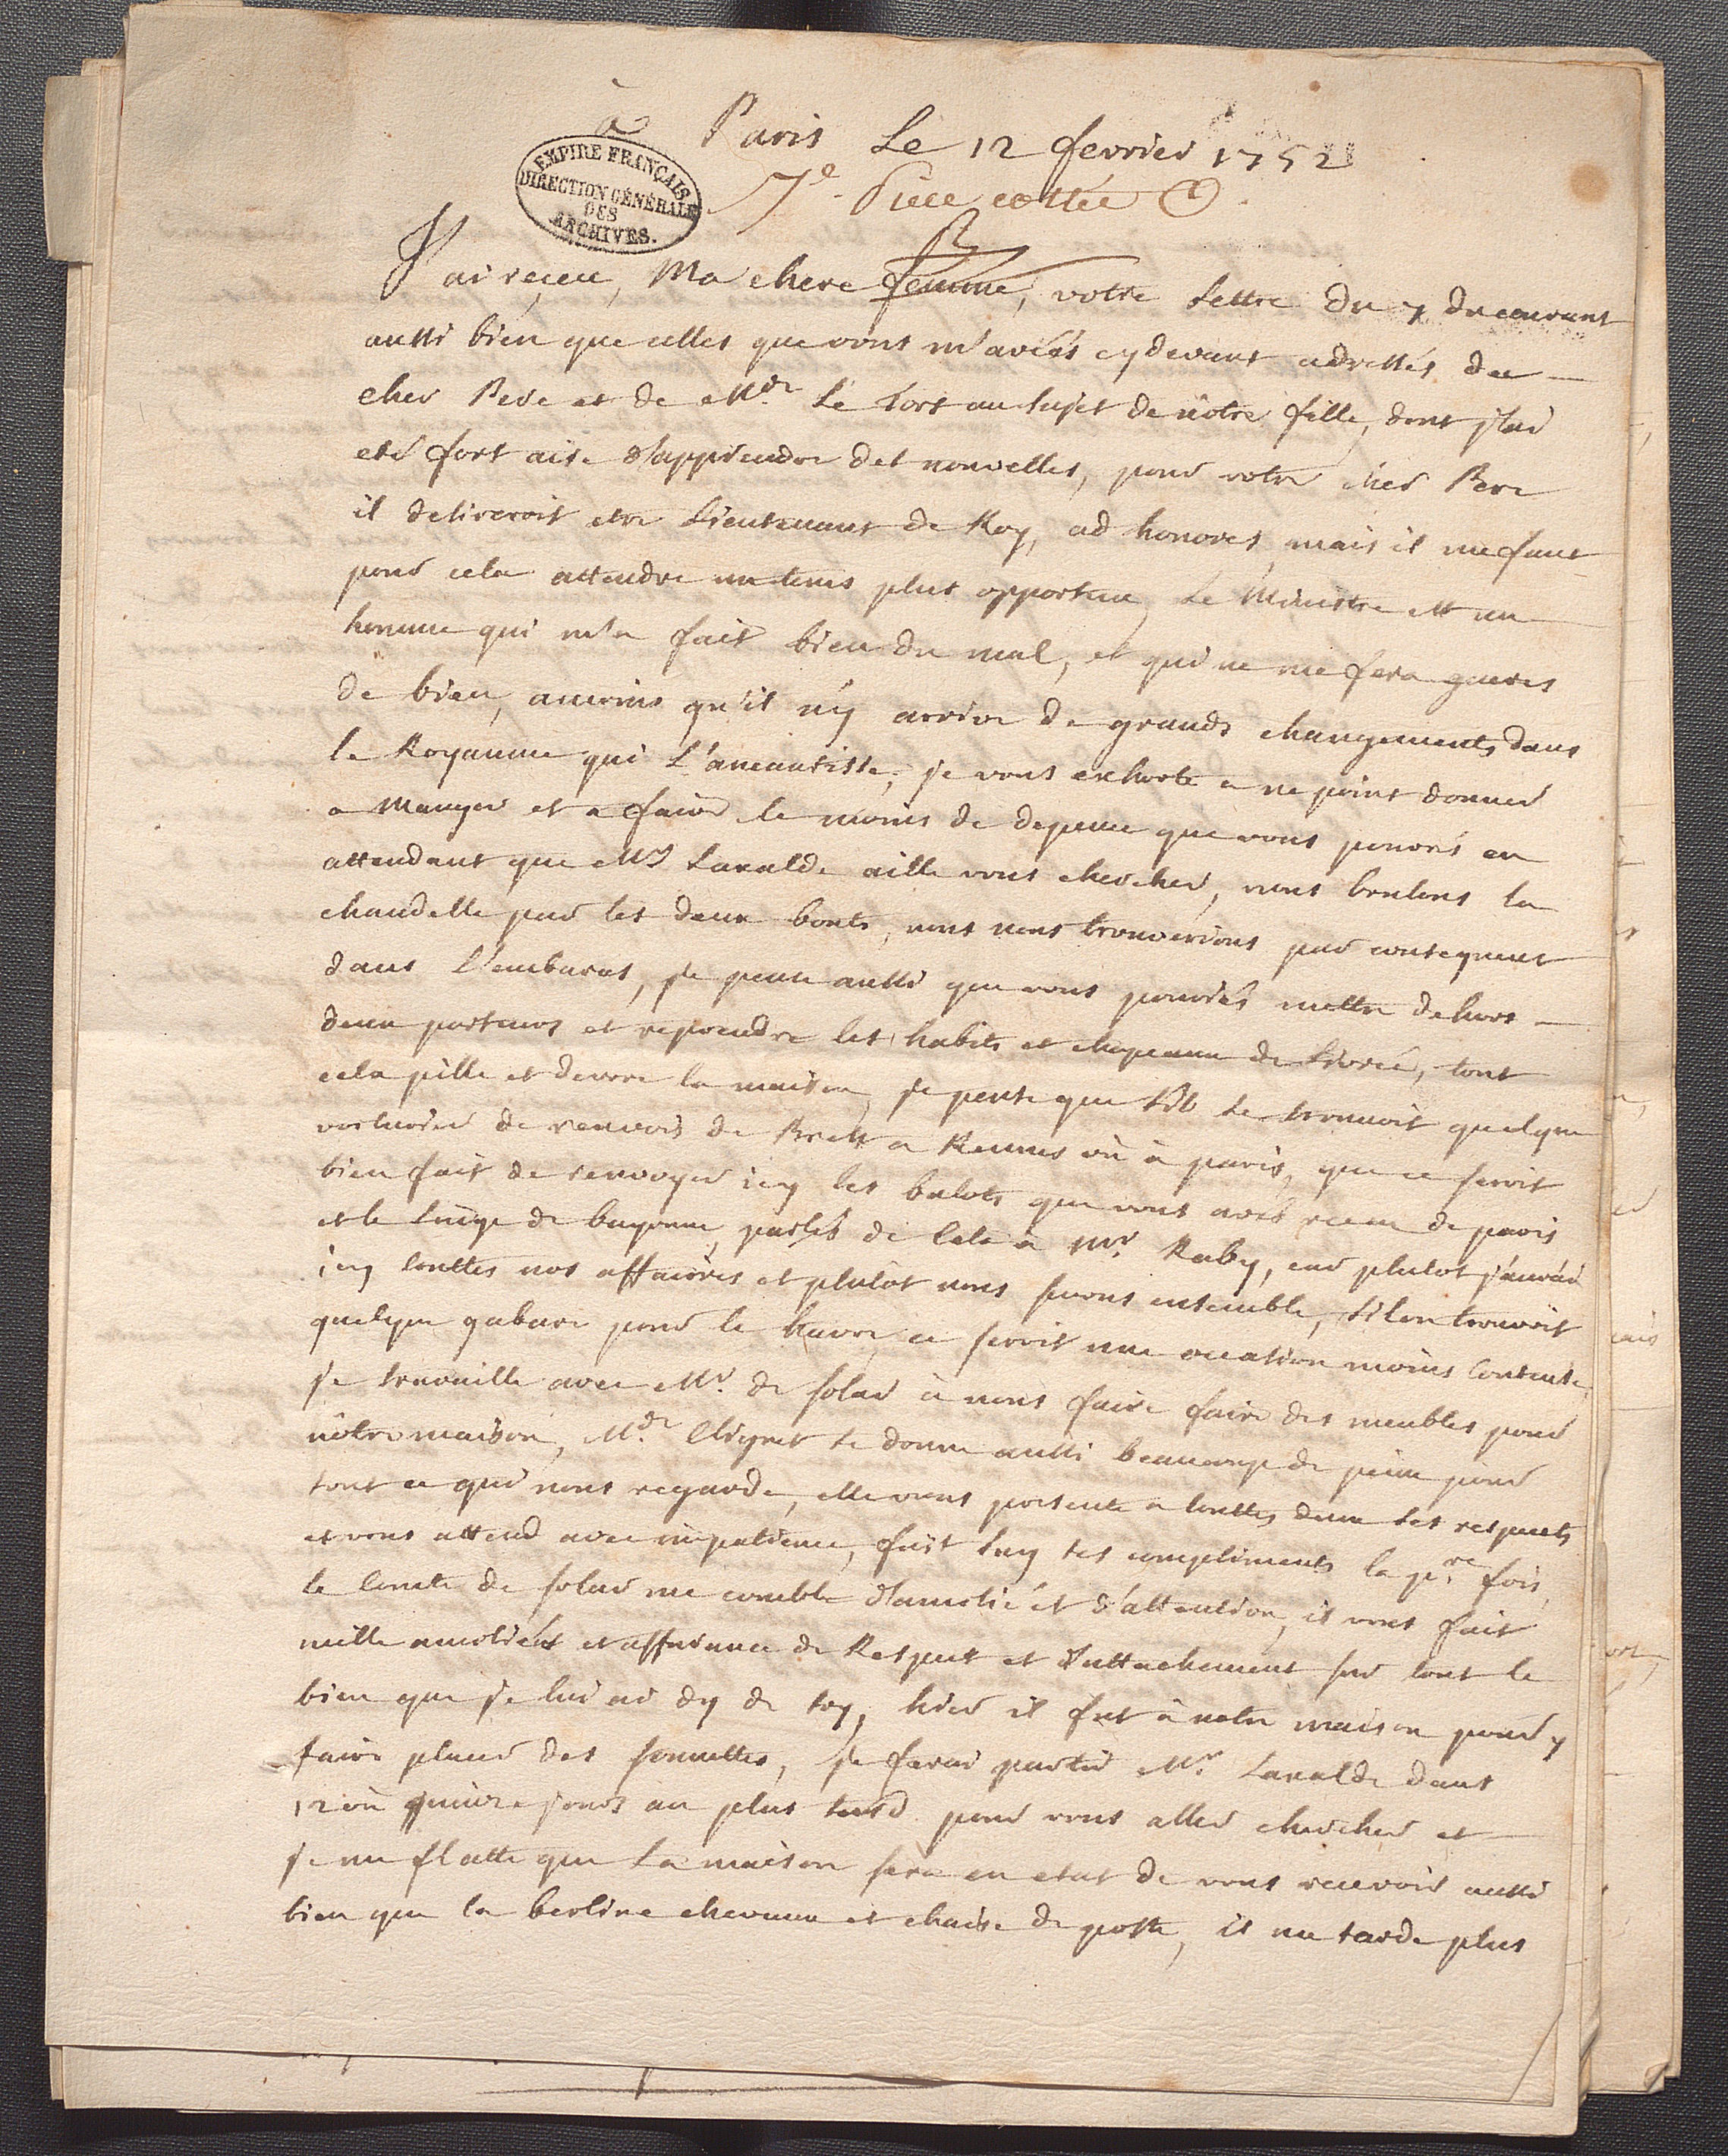 à Paris Le 12 fevrier 1752
EMPIRE FRANÇAIS
DIRECTION GÉNÉRALE
DES
ARCHIVES.
7e. Piece cottée
J'ai reçeu, Ma chere femme, votre Lettre du 7 du courant
aussi bien que celles que vous m'aviés cydevant adressés du
cher Pere et de Mde. Le fort au sujet de nôtre fille, dont j'ai
eté fort aise d'apprendre des nouvelles, pour votre cher Pere
il desireroit etre Lieutenant de Roy, ad honores, mais il me faut
pour cela attendre un tems plus opportun, Le Ministre est un
homme qui m'a fait bien du mal, et qui ne me fera gueres
de bien, amoins qu'il n'y arrive de grands changements dans
le Royaume qui L'aneantisse, je vous exhorte a ne point donner
a manger et a faire le moins de depense que vous pourés en
attendant que Mr Laralde aille vous chercher, nous brulons la
chandelle par les deux bouts, nous nous trouverions par consequent
dans l'embaras, je pense aussi que vous pouriés mettre dehors
deux porteurs et reprendre les habits et chapeaux de Livrée, tout
cela pille et devore la maison, je pense que s'il se trouvoit quelque
voiturier de renvois de Brest a Rennes où à paris, que ce seroit
bien fait de renvoyer icy les balots que vous avés receu de paris
et le linge de bayonne, parlés de cela a Mr. Raby, car plutot j'aurai
icy touttes nos affaires et plutôt nous serons ensemble, si l'on trouvoit
quelque gabare pour le havre, ce seroit une occasion moins couteuse,
je travaille avec Mr. de solar à nous faire faire des meubles pour
nôtre maison, Mde. se donne aussi beaucoup de peine pour
tout ce qui nous regarde, elle vous presente a touttes deux ses respects
et vous attend avec impatience, fais luy tes compliments la pre. fois,
le Comte de solar me comble d'amitié et d'attention, il vous fait
mille amitiés et assurance de Respect et d'attachement sur tout le
bien que je lui ai dy de toy, hier il fut à notre maison pour y
faire placer des sonnettes, je ferai partir Mr. Laralde dans
12 où quinze jours au plus tard pour vous aller chercher et
je me flatte que la maison sera en etat de vous recevoir aussi
bien que la berline chevaux et chaise de poste, il me tarde plus